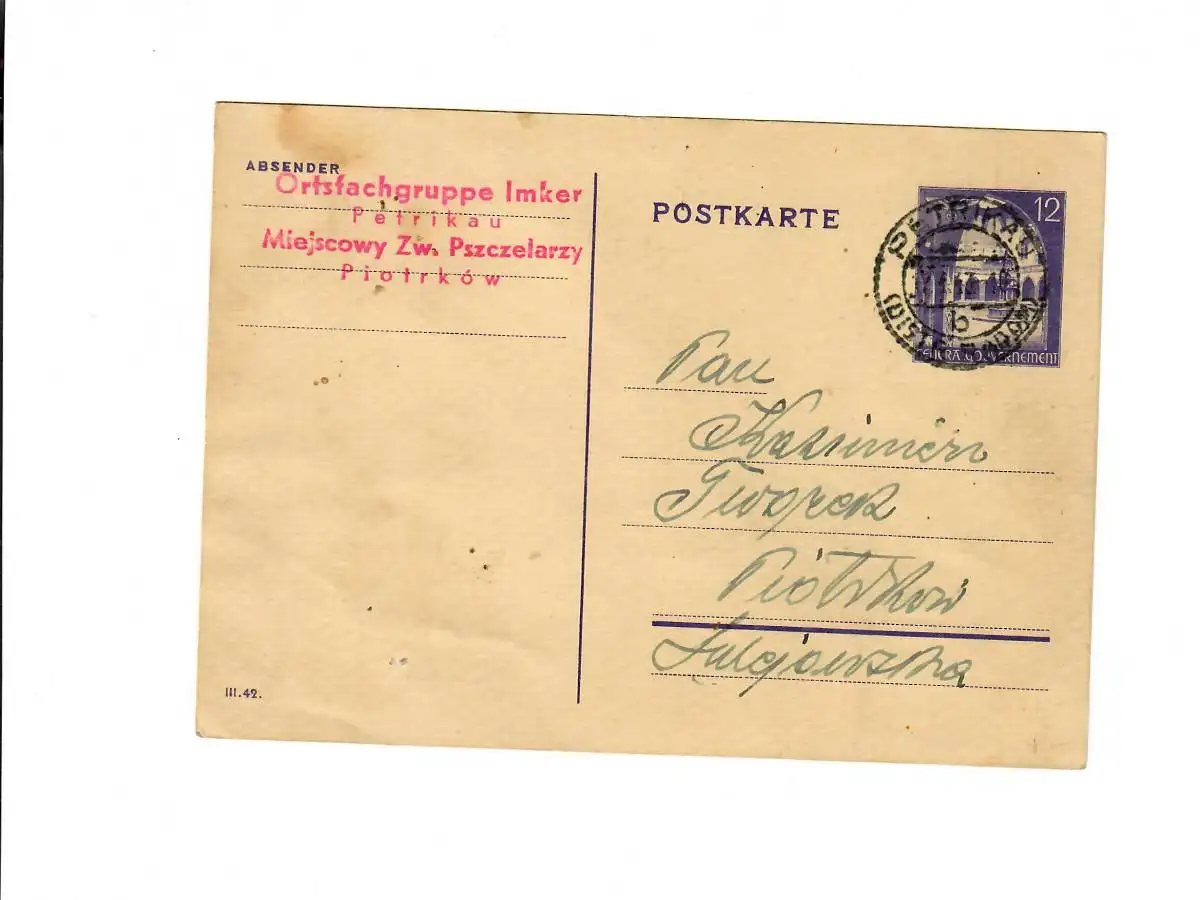 ABSENDER
Ortsfachgruppe Imker
Petrikau
Miejscowy Zw. Pszczelarzy
Piotrków
III.42.
POSTKARTE
12
PETRIKAU
b
GENERALGOUVERNEMENT
Pan
Kazimierz
Tworek
Piótrków